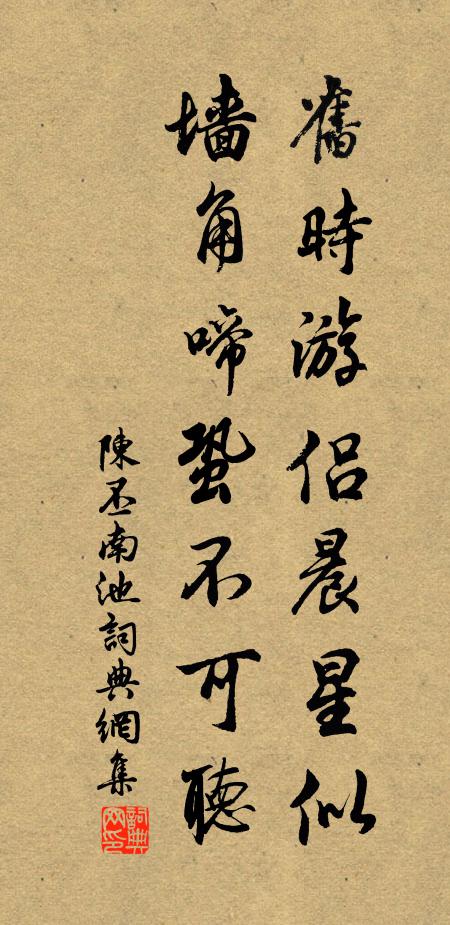 舊時游侶晨星似
墙角啼蛩不可聽
陳丕南池詞典網集
詞典網印